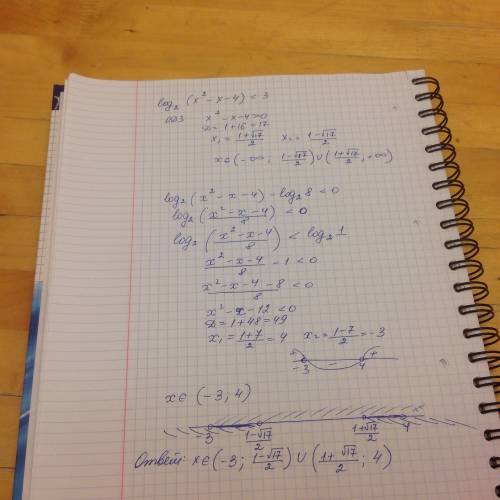 log₂ (x² - x - 4) < 3
ОДЗ x² - x - 4 > 0
D = 1 + 16 = 17
x₁ = (1+√17)/2 x₂ = (1-√17)/2
x ∈ (-∞; (1-√17)/2) ∪ ((1+√17)/2; +∞)
log₂ (x² - x - 4) - log₂ 8 < 0
log₂ ((x² - x - 4)/8) < 0
log₂ ((x² - x - 4)/8) < log₂ 1
(x² - x - 4)/8 - 1 < 0
(x² - x - 4 - 8)/8 < 0
x² - x - 12 < 0
D = 1 + 48 = 49
x₁ = (1+7)/2 = 4 x₂ = (1-7)/2 = -3
+ - +
-3 4
x ∈ (-3; 4)
-3 (1-√17)/2 (1+√17)/2 4 x
Ответ: x ∈ (-3; (1-√17)/2) ∪ ((1+√17)/2; 4)